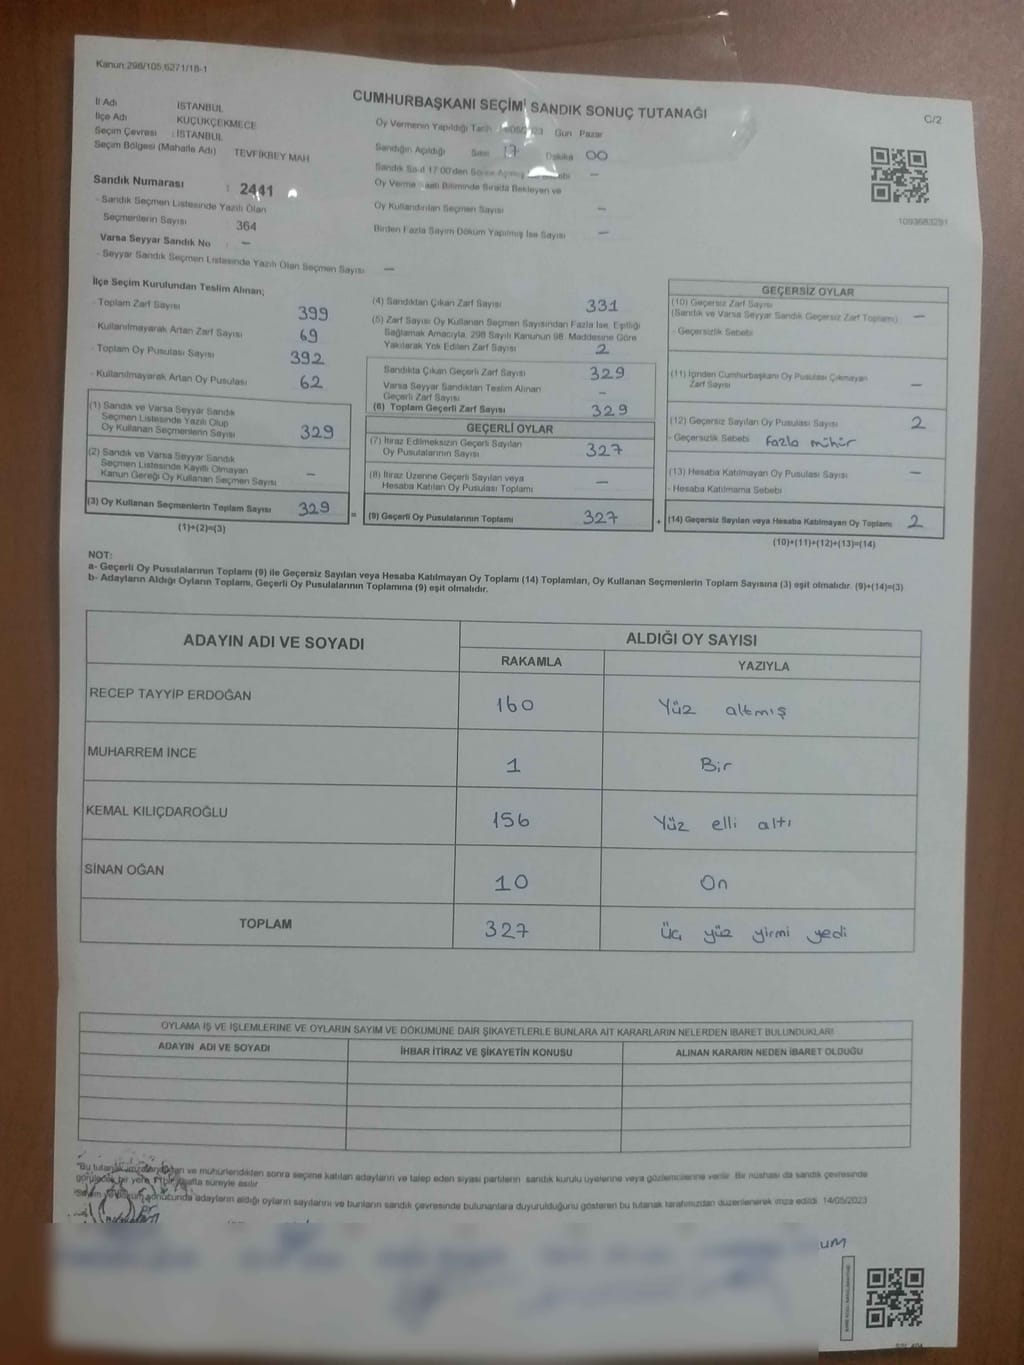 Kanun:298/105,6271/18-1
CUMHURBAŞKANI SEÇİMİ SANDIK SONUÇ TUTANAĞI
C/2
İl Adı İSTANBUL
İlçe Adı KÜÇÜKÇEKMECE
Seçim Çevresi : İSTANBUL
Seçim Bölgesi (Mahalle Adı) TEVFİKBEY MAH
Sandık Numarası : 2441
- Sandık Seçmen Listesinde Yazılı Olan
Seçmenlerin Sayısı 364
Varsa Seyyar Sandık No : –
- Seyyar Sandık Seçmen Listesinde Yazılı Olan Seçmen Sayısı –
Oy Vermenin Yapıldığı Tarih Gün Pazar
Sandığın Açıldığı Saat 17 Dakika 00
Sandık Saat 17.00'den Sonra –
Oy Verme Saati Bitiminde Sırada Bekleyen ve
Oy Kullandırılan Seçmen Sayısı –
Birden Fazla Sayım Döküm Yapılmış İse Sayısı –
1093683291
İlçe Seçim Kurulundan Teslim Alınan;
- Toplam Zarf Sayısı 399
- Kullanılmayarak Artan Zarf Sayısı 69
- Toplam Oy Pusulası Sayısı 392
- Kullanılmayarak Artan Oy Pusulası 62
(1) Sandık ve Varsa Seyyar Sandık
Seçmen Listesinde Yazılı Olup
Oy Kullanan Seçmenlerin Sayısı 329
(2) Sandık ve Varsa Seyyar Sandık
Seçmen Listesinde Kayıtlı Olmayan
Kanun Gereği Oy Kullanan Seçmen Sayısı –
(3) Oy Kullanan Seçmenlerin Toplam Sayısı 329 =
(1)+(2)=(3)
(4) Sandıktan Çıkan Zarf Sayısı 331
(5) Zarf Sayısı Oy Kullanan Seçmen Sayısından Fazla İse, Eşitliği
Sağlamak Amacıyla, 298 Sayılı Kanunun 98. Maddesine Göre
Yakılarak Yok Edilen Zarf Sayısı 2
Sandıkta Çıkan Geçerli Zarf Sayısı 329
Varsa Seyyar Sandıktan Teslim Alınan
Geçerli Zarf Sayısı –
(6) Toplam Geçerli Zarf Sayısı 329
GEÇERLİ OYLAR
(7) İtiraz Edilmeksizin Geçerli Sayılan
Oy Pusulalarının Sayısı 327
(8) İtiraz Üzerine Geçerli Sayılan veya
Hesaba Katılan Oy Pusulası Toplamı –
(9) Geçerli Oy Pusulalarının Toplamı 327 +
GEÇERSİZ OYLAR
(10) Geçersiz Zarf Sayısı
(Sandık ve Varsa Seyyar Sandık Geçersiz Zarf Toplamı) –
- Geçersizlik Sebebi
(11) İçinden Cumhurbaşkanı Oy Pusulası Çıkmayan
Zarf Sayısı –
(12) Geçersiz Sayılan Oy Pusulası Sayısı 2
- Geçersizlik Sebebi Fazla mühür
(13) Hesaba Katılmayan Oy Pusulası Sayısı –
- Hesaba Katılmama Sebebi
(14) Geçersiz Sayılan veya Hesaba Katılmayan Oy Toplamı 2
(10)+(11)+(12)+(13)=(14)
NOT:
a- Geçerli Oy Pusulalarının Toplamı (9) ile Geçersiz Sayılan veya Hesaba Katılmayan Oy Toplamı (14) Toplamları, Oy Kullanan Seçmenlerin Toplam Sayısına (3) eşit olmalıdır. (9)+(14)=(3)
b- Adayların Aldığı Oyların Toplamı, Geçerli Oy Pusulalarının Toplamına (9) eşit olmalıdır.
ADAYIN ADI VE SOYADI ALDIĞI OY SAYISI
RAKAMLA YAZIYLA
RECEP TAYYİP ERDOĞAN 160 Yüz altmış
MUHARREM İNCE 1 Bir
KEMAL KILIÇDAROĞLU 156 Yüz elli altı
SİNAN OĞAN 10 On
TOPLAM 327 Üç yüz yirmi yedi
OYLAMA İŞ VE İŞLEMLERİNE VE OYLARIN SAYIM VE DÖKÜMÜNE DAİR ŞİKAYETLERLE BUNLARA AİT KARARLARIN NELERDEN İBARET BULUNDUKLARI
ADAYIN ADI VE SOYADI İHBAR İTİRAZ VE ŞİKAYETİN KONUSU ALINAN KARARIN NEDEN İBARET OLDUĞU
"Bu tutanak ve mühürlendikten sonra seçime katılan adayların ve talep eden siyasi partilerin sandık kurulu üyelerine veya gözlemcilerine verilir. Bir nüshası da sandık çevresinde
bir yere süreyle asılır.
sonucunda adayların aldığı oyların sayılarını ve bunların sandık çevresinde bulunanlara duyurulduğunu gösteren bu tutanak tarafımızdan düzenlenerek imza edildi. 14/05/2023
um